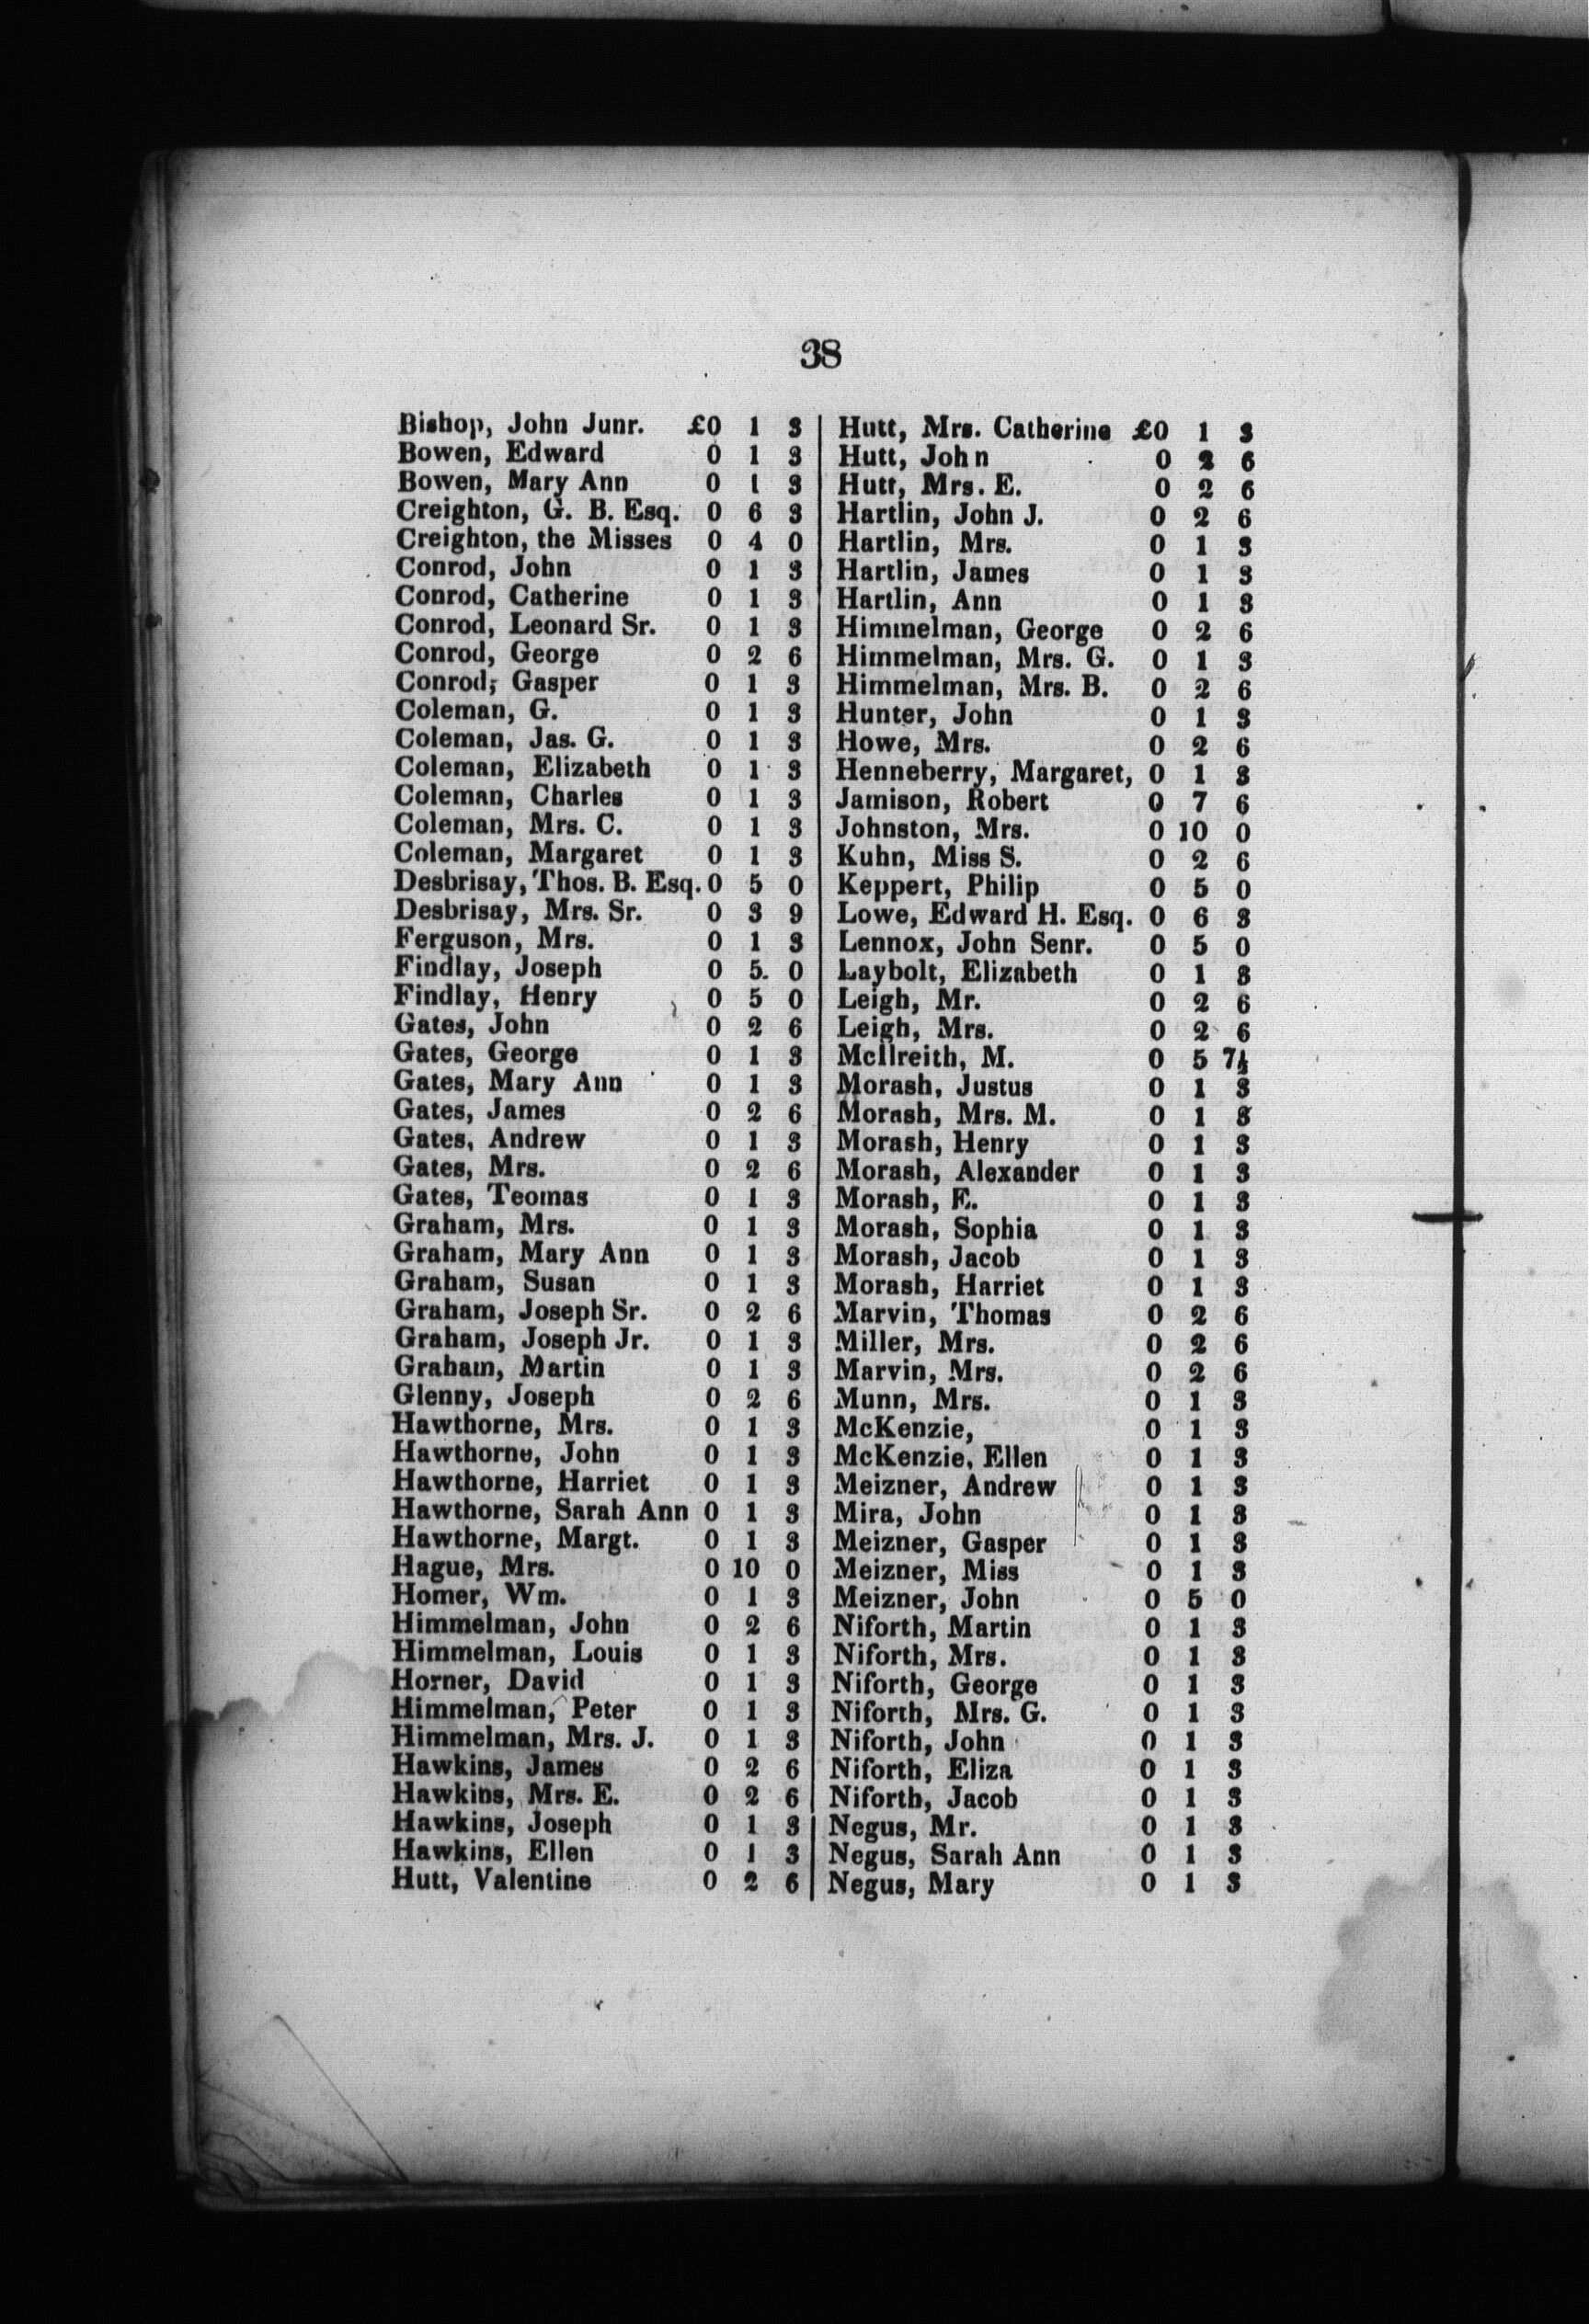 38
Bishop, John Junr. £0 1 3
Bowen, Edward 0 1 3
Bowen, Mary Ann 0 1 3
Creighton, G. B. Esq. 0 6 3
Creighton, the Misses 0 4 0
Conrod, John 0 1 3
Conrod, Catherine 0 1 3
Conrod, Leonard Sr. 0 1 3
Conrod, George 0 2 6
Conrod, Gasper 0 1 3
Coleman, G. 0 1 3
Coleman, Jas. G. 0 1 3
Coleman, Elizabeth 0 1 3
Coleman, Charles 0 1 3
Coleman, Mrs. C. 0 1 3
Coleman, Margaret 0 1 3
Desbrisay, Thos. B. Esq. 0 5 0
Desbrisay, Mrs. Sr. 0 3 9
Ferguson, Mrs. 0 1 3
Findlay, Joseph 0 5. 0
Findlay, Henry 0 5 0
Gates, John 0 2 6
Gates, George 0 1 3
Gates, Mary Ann 0 1 3
Gates, James 0 2 6
Gates, Andrew 0 1 3
Gates, Mrs. 0 2 6
Gates, Teomas 0 1 3
Graham, Mrs. 0 1 3
Graham, Mary Ann 0 1 3
Graham, Susan 0 1 3
Graham, Joseph Sr. 0 2 6
Graham, Joseph Jr. 0 1 3
Graham, Martin 0 1 3
Glenny, Joseph 0 2 6
Hawthorne, Mrs. 0 1 3
Hawthorne, John 0 1 3
Hawthorne, Harriet 0 1 3
Hawthorne, Sarah Ann 0 1 3
Hawthorne, Margt. 0 1 3
Hague, Mrs. 0 10 0
Homer, Wm. 0 1 3
Himmelman, John 0 2 6
Himmelman, Louis 0 1 3
Horner, David 0 1 3
Himmelman, Peter 0 1 3
Himmelman, Mrs. J. 0 1 3
Hawkins, James 0 2 6
Hawkins, Mrs. E. 0 2 6
Hawkins, Joseph 0 1 3
Hawkins, Ellen 0 1 3
Hutt, Valentine 0 2 6
Hutt, Mrs. Catherine £0 1 3
Hutt, John 0 2 6
Hutt, Mrs. E. 0 2 6
Hartlin, John J. 0 2 6
Hartlin, Mrs. 0 1 3
Hartlin, James 0 1 3
Hartlin, Ann 0 1 3
Himmelman, George 0 2 6
Himmelman, Mrs. G. 0 1 3
Himmelman, Mrs. B. 0 2 6
Hunter, John 0 1 3
Howe, Mrs. 0 2 6
Henneberry, Margaret, 0 1 3
Jamison, Robert 0 7 6
Johnston, Mrs. 0 10 0
Kuhn, Miss S. 0 2 6
Keppert, Philip 0 5 0
Lowe, Edward H. Esq. 0 6 3
Lennox, John Senr. 0 5 0
Laybolt, Elizabeth 0 1 3
Leigh, Mr. 0 2 6
Leigh, Mrs. 0 2 6
McIlreith, M. 0 5 7½
Morash, Justus 0 1 3
Morash, Mrs. M. 0 1 3
Morash, Henry 0 1 3
Morash, Alexander 0 1 3
Morash, E. 0 1 3
Morash, Sophia 0 1 3
Morash, Jacob 0 1 3
Morash, Harriet 0 1 3
Marvin, Thomas 0 2 6
Miller, Mrs. 0 2 6
Marvin, Mrs. 0 2 6
Munn, Mrs. 0 1 3
McKenzie, 0 1 3
McKenzie, Ellen 0 1 3
Meizner, Andrew 0 1 3
Mira, John 0 1 3
Meizner, Gasper 0 1 3
Meizner, Miss 0 1 3
Meizner, John 0 5 0
Niforth, Martin 0 1 3
Niforth, Mrs. 0 1 3
Niforth, George 0 1 3
Niforth, Mrs. G. 0 1 3
Niforth, John 0 1 3
Niforth, Eliza 0 1 3
Niforth, Jacob 0 1 3
Negus, Mr. 0 1 3
Negus, Sarah Ann 0 1 3
Negus, Mary 0 1 3